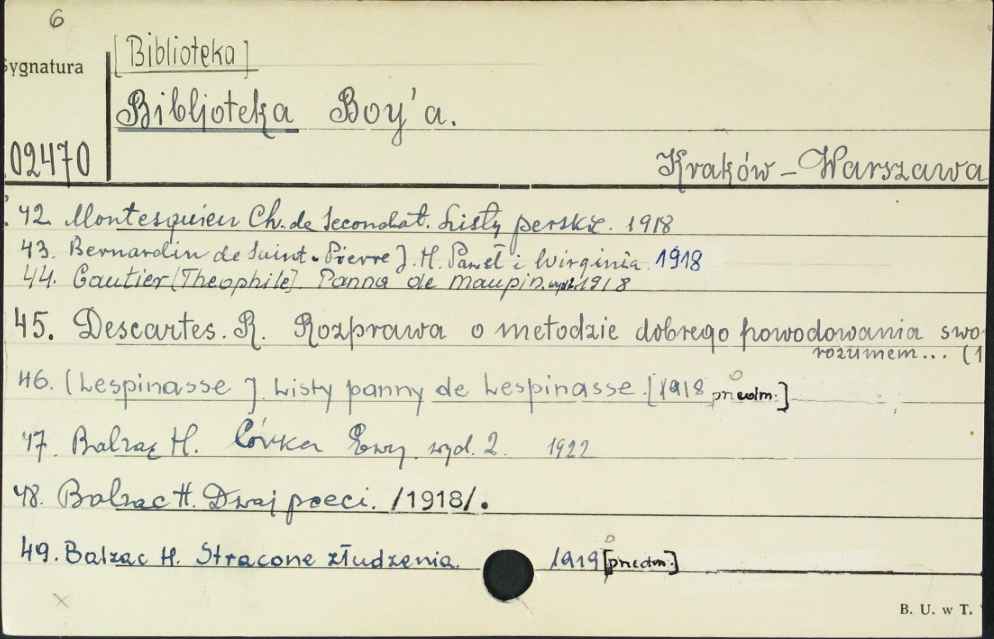 6
[Biblioteka]
Sygnatura
Bibljoteka Boy'a.
02470
Kraków – Warszawa
42. Montesquieu Ch. de Secondat. Listy perskie. 1918
43. Bernardin de Saint-Pierre J. H. Paweł i Wirginia. 1918
44. Gautier [Theophile]. Panna de Maupin. 1918
45. Descartes. R. Rozprawa o metodzie dobrego powodowania swo
rozumem... (1
46. [Lespinasse]. Listy panny de Lespinasse. [1918 przedm.]
47. Balzac H. Córka Ewy. wyd. 2. 1922
48. Balzac H. Dwaj poeci. /1918/.
49. Balzac H. Stracone złudzenia. 1919 [przedm.]
B. U. w T.